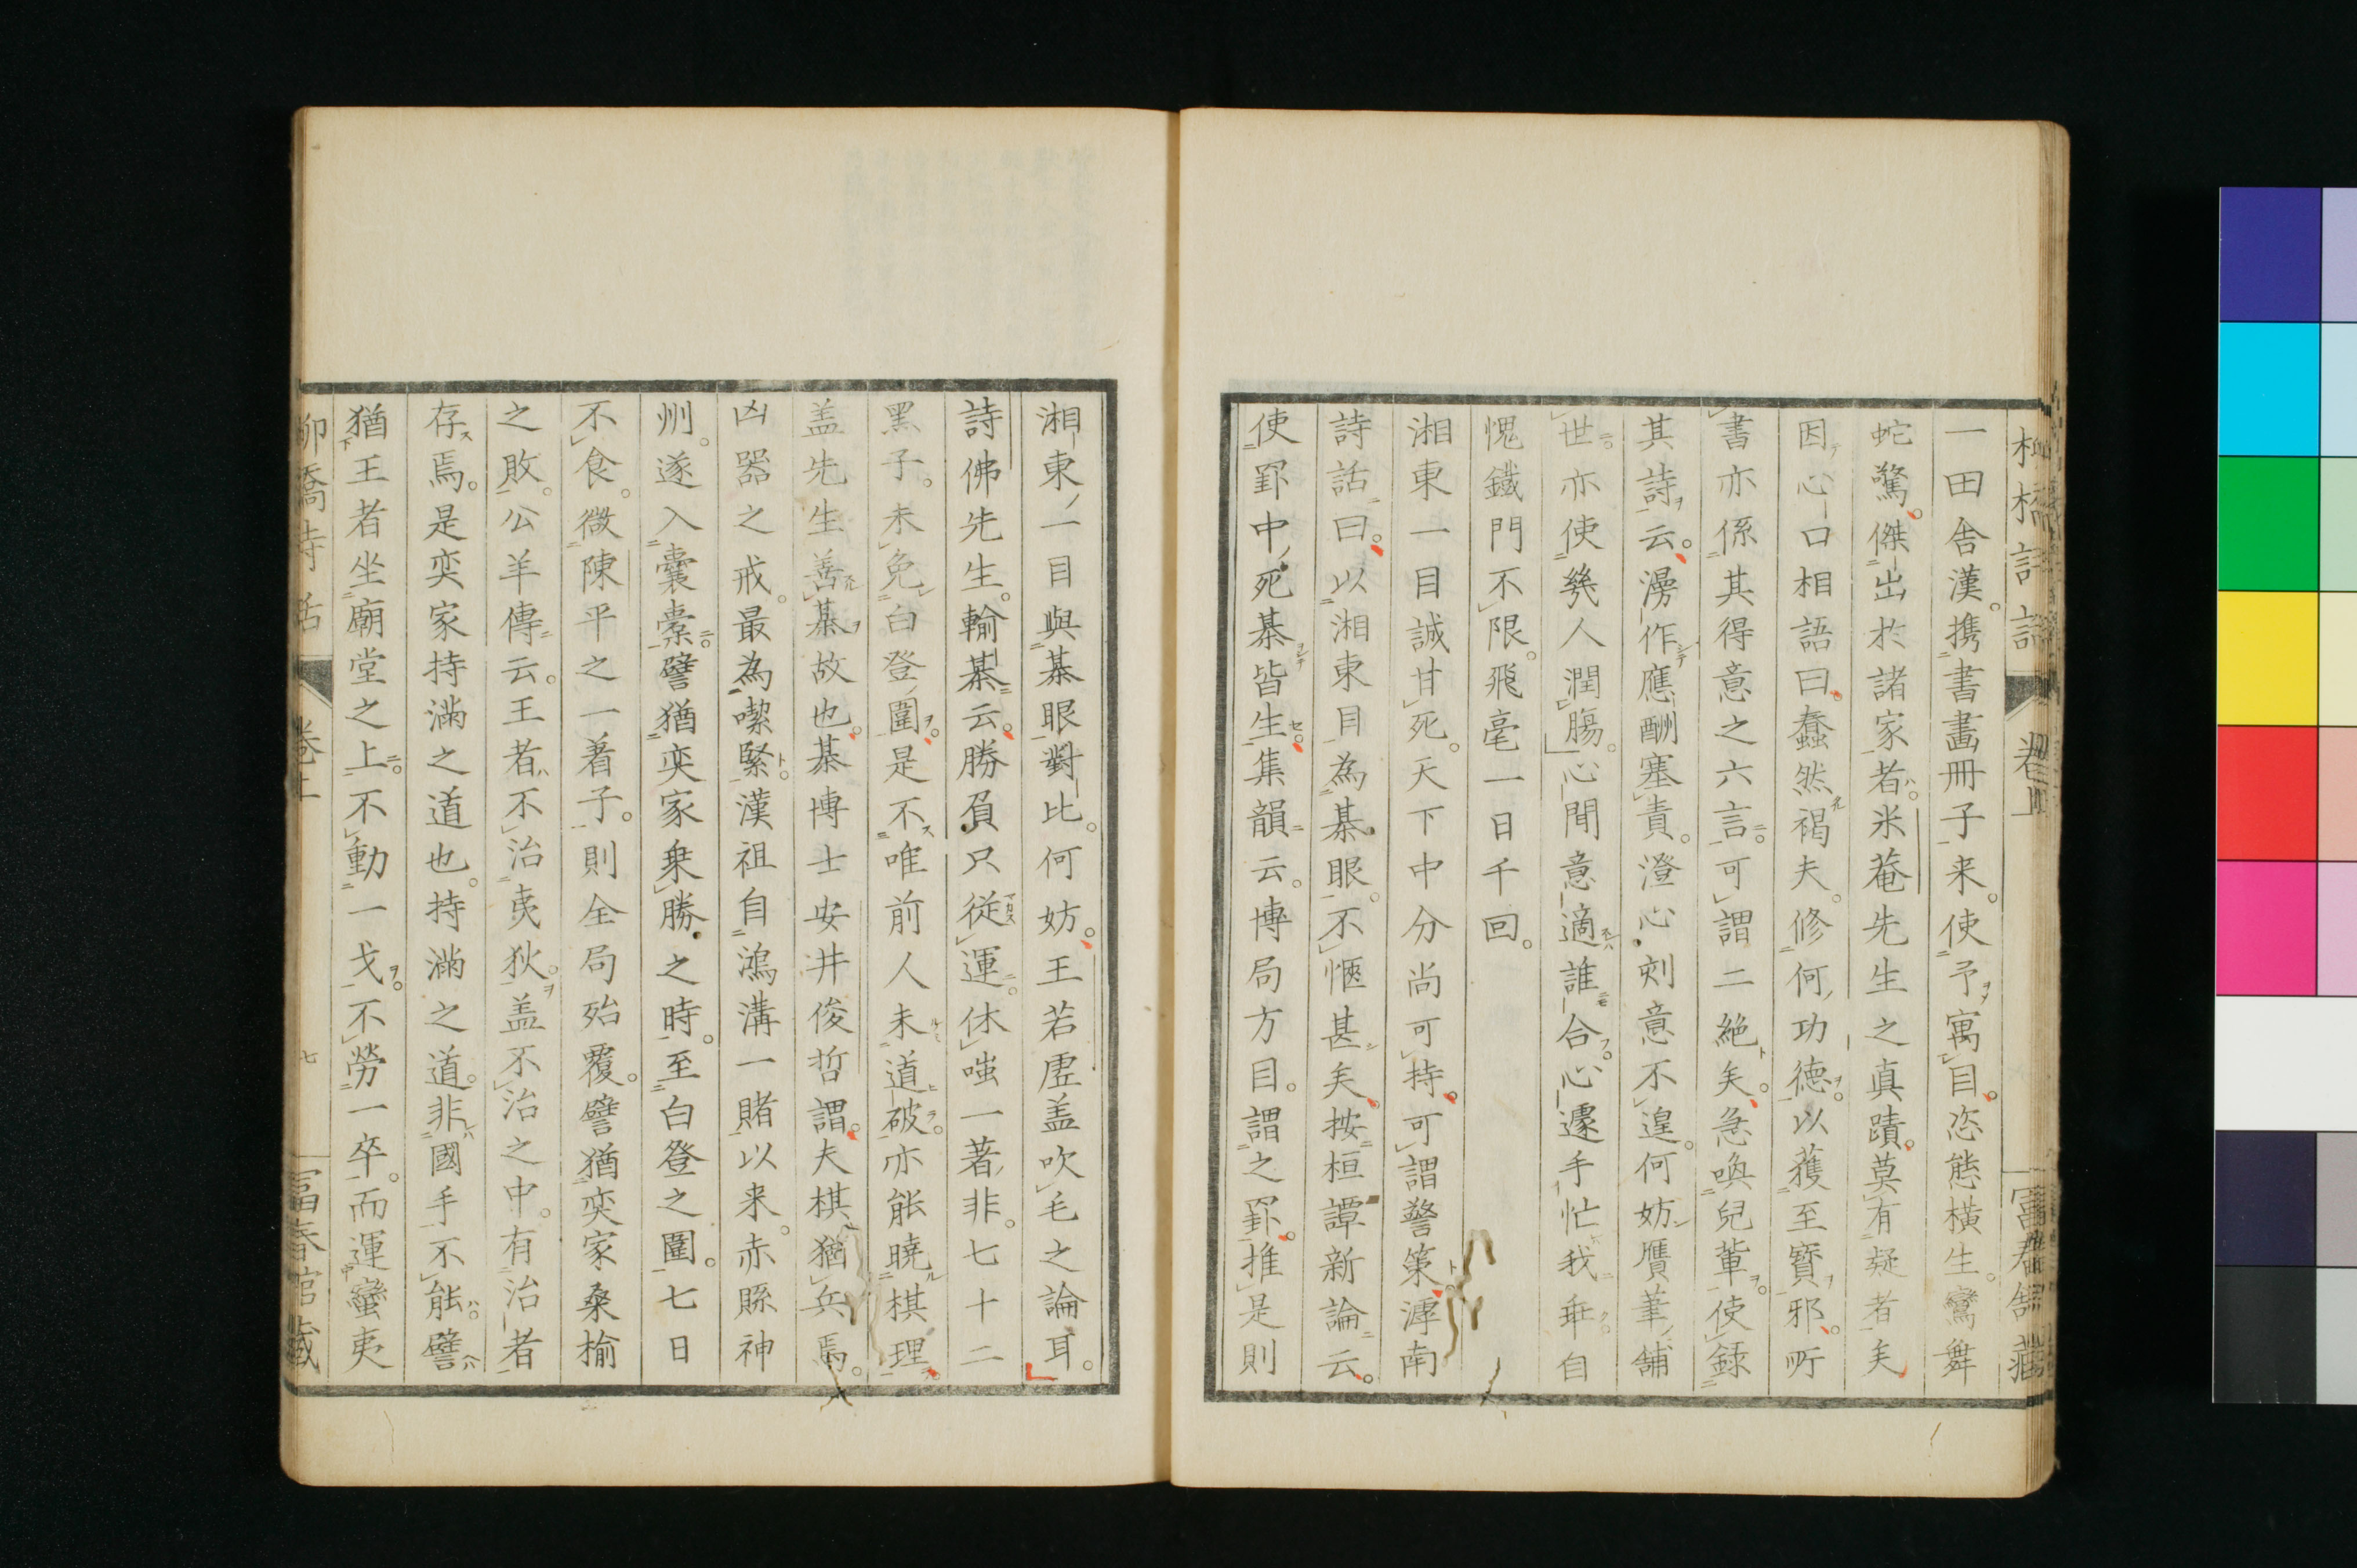 一田舎漢。携書畫冊子来。使予寓目。恣態橫生。鸞舞
蛇驚。傑出於諸家者。米菴先生之真蹟。莫有疑者矣
因心口相語曰。蠢然褐夫。修何功德。以獲至寶邪。所
書亦係其得意之六言。可謂二絶矣。急喚兒輩。使錄
其詩云。漫作應酬塞責。澄心刻意不遑。何妨贋筆舖
世。亦使幾人潤腸。心閒意適誰合。心遽手忙我乖。自
愧鐵門不限。飛毫一日千回。
湘東一目誠甘死。天下中分尚可持。可謂警策。滹南
詩話曰。以湘東目為棊眼。不愜甚矣。按桓譚新論云。
使罫中死棊皆生。集韻云。博局方目。謂之罫。推是則
湘東一目與棊眼對比。何妨。王若虛盖吹毛之論耳。
詩佛先生。輸棊云。勝負只従運。休嗤一著非。七十二
黑子。未免白登圍。是不唯前人未道破。亦能曉棋理。
盖先生善棊故也。棊博士安井俊哲謂。夫棋猶兵焉。
凶器之戒。最為喫緊。漢祖自鴻溝一賭以来。赤縣神
州。遂入囊橐。譬猶奕家乗勝之時。至白登之圍。七日
不食。微陳平之一着子。則全局殆覆。譬猶奕家桑榆
之敗。公羊傳云。王者不治夷狄。盖不治之中。有治者
存焉。是奕家持滿之道也。持滿之道。非國手不能。譬
猶王者坐廟堂之上。不動一戈。不勞一卒。而運蠻夷
柳橋詩話 卷上 七 富春館藏